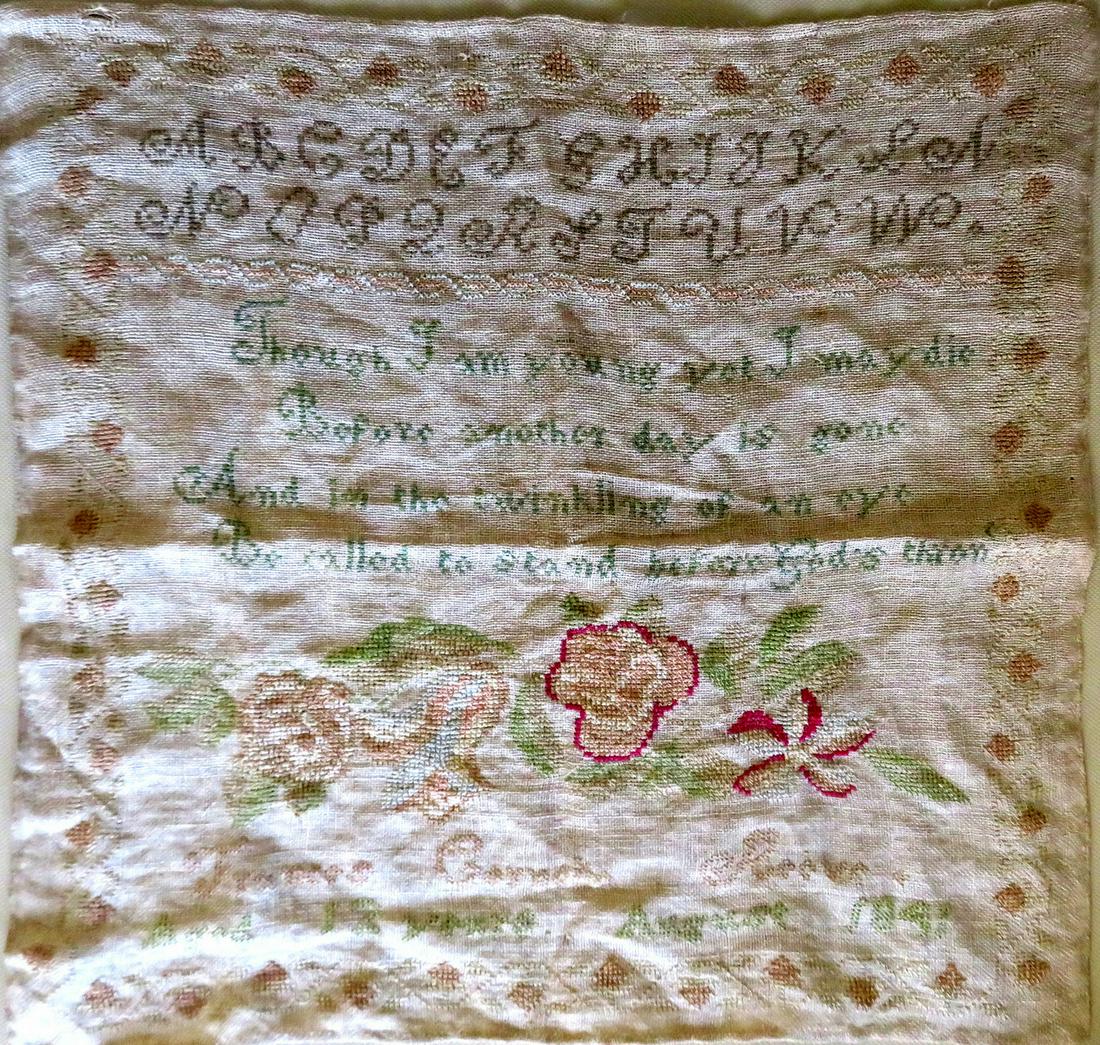 A B C D E F G H I J K L M
N O P Q R S T U V W.
Though I am young yet I may die
Before another day is gone
And in the twinkling of an eye
Be called to stand before Gods thron
Aged 13 years August